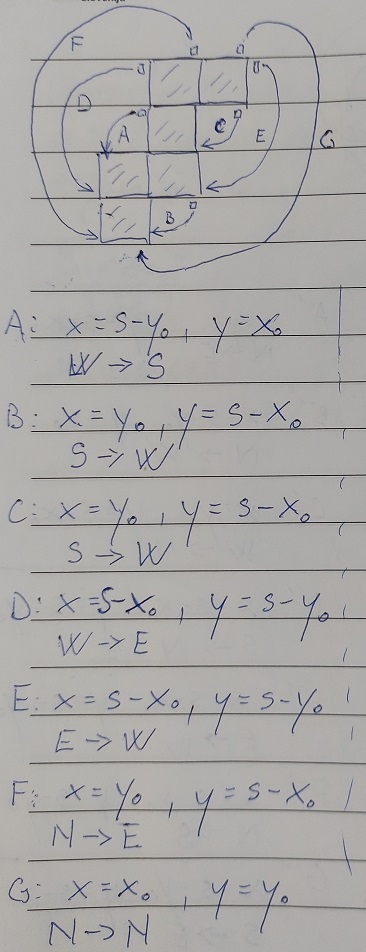 F
D
A
C
E
G
B
A: x = S-y₀, y = x₀
W → S
B: x = y₀, y = S-x₀
S → W
C: x = y₀, y = S-x₀
S → W
D: x = S-x₀, y = S-y₀
W → E
E: x = S-x₀, y = S-y₀
E → W
F: x = y₀, y = S-x₀
N → E
G: x = x₀, y = y₀
N → N